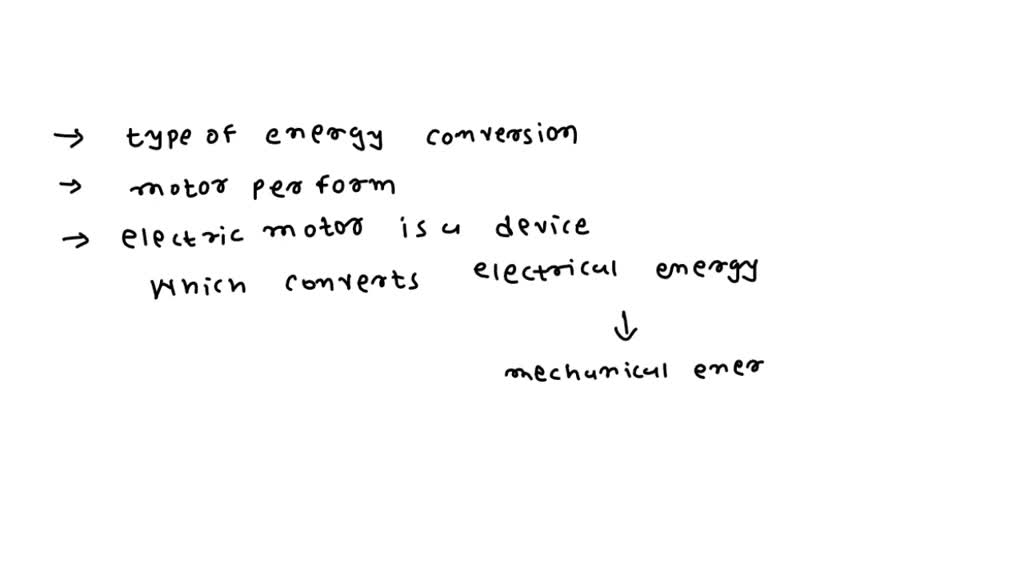 → type of energy conversion
→ motor perform
→ electric motor is a device
which converts electrical energy
↓
mechanical ener